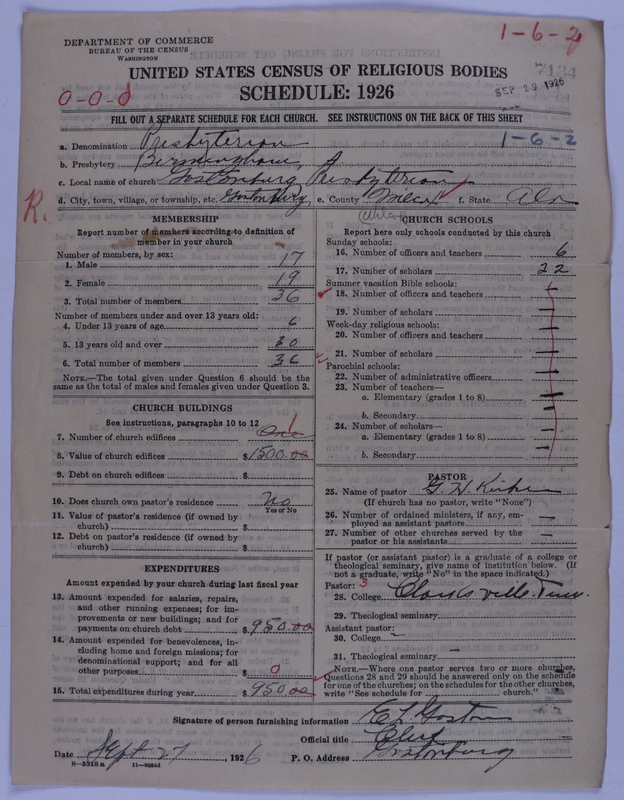 1-6-2
DEPARTMENT OF COMMERCE
BUREAU OF THE CENSUS
WASHINGTON
UNITED STATES CENSUS OF RELIGIOUS BODIES
SCHEDULE: 1926
SEP 29 1926
0-0-0
FILL OUT A SEPARATE SCHEDULE FOR EACH CHURCH. SEE INSTRUCTIONS ON THE BACK OF THIS SHEET
a. Denomination Presbyterian 1-6-2
b. Presbytery Birmingham, A
c. Local name of church Gastonburg Presbyterian
d. City, town, village, or township, etc. Gastonburg e. County f. State Ala
R.
Wilcox
MEMBERSHIP
Report number of members according to definition of member in your church
Number of members, by sex:
1. Male 17
2. Female 19
3. Total number of members 36
Number of members under and over 13 years old:
4. Under 13 years of age 6
5. 13 years old and over 30
6. Total number of members 36
NOTE.—The total given under Question 6 should be the
same as the total of males and females given under Question 3.
CHURCH BUILDINGS
See instructions, paragraphs 10 to 12
7. Number of church edifices One 1
8. Value of church edifices $1500.00
9. Debt on church edifices $
10. Does church own pastor's residence No
Yes or No
11. Value of pastor's residence (if owned by
church) $
12. Debt on pastor's residence (if owned by
church) $
EXPENDITURES
Amount expended by your church during last fiscal year
13. Amount expended for salaries, repairs,
and other running expenses; for im-
provements or new buildings; and for
payments on church debt $950.00
14. Amount expended for benevolences, in-
cluding home and foreign missions; for
denominational support; and for all
other purposes $ 0
15. Total expenditures during year $950.00
CHURCH SCHOOLS
Report here only schools conducted by this church
Sunday schools:
16. Number of officers and teachers 6
17. Number of scholars 22
Summer vacation Bible schools:
18. Number of officers and teachers —
19. Number of scholars —
Week-day religious schools:
20. Number of officers and teachers —
21. Number of scholars —
Parochial schools:
22. Number of administrative officers —
23. Number of teachers—
a. Elementary (grades 1 to 8) —
b. Secondary —
24. Number of scholars—
a. Elementary (grades 1 to 8) —
b. Secondary —
PASTOR
25. Name of pastor G. H. Kirker
(If church has no pastor, write "None")
26. Number of ordained ministers, if any, em-
ployed as assistant pastors —
27. Number of other churches served by the
pastor or his assistants —
If pastor (or assistant pastor) is a graduate of a college or
theological seminary, give name of institution below. (If
not a graduate, write "No" in the space indicated.)
Pastor: 3
28. College Clarksville, Tenn.
29. Theological seminary
Assistant pastor:
30. College —
31. Theological seminary —
NOTE.—Where one pastor serves two or more churches,
Questions 28 and 29 should be answered only on the schedule
for one of the churches; on the schedules for the other churches,
write "See schedule for church."
Signature of person furnishing information E L Gaston
Official title Clerk
Date Sept 27, 1926 P. O. Address Gastonburg